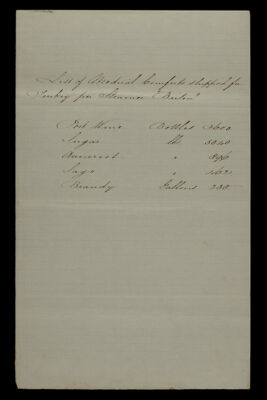 List of Medical Comforts shipped for
Turkey per Steamer "Berlin"
Port Wine Bottles 3600
Sugar lbs
Arrowroot " 896
Sago "
Brandy Gallons 230